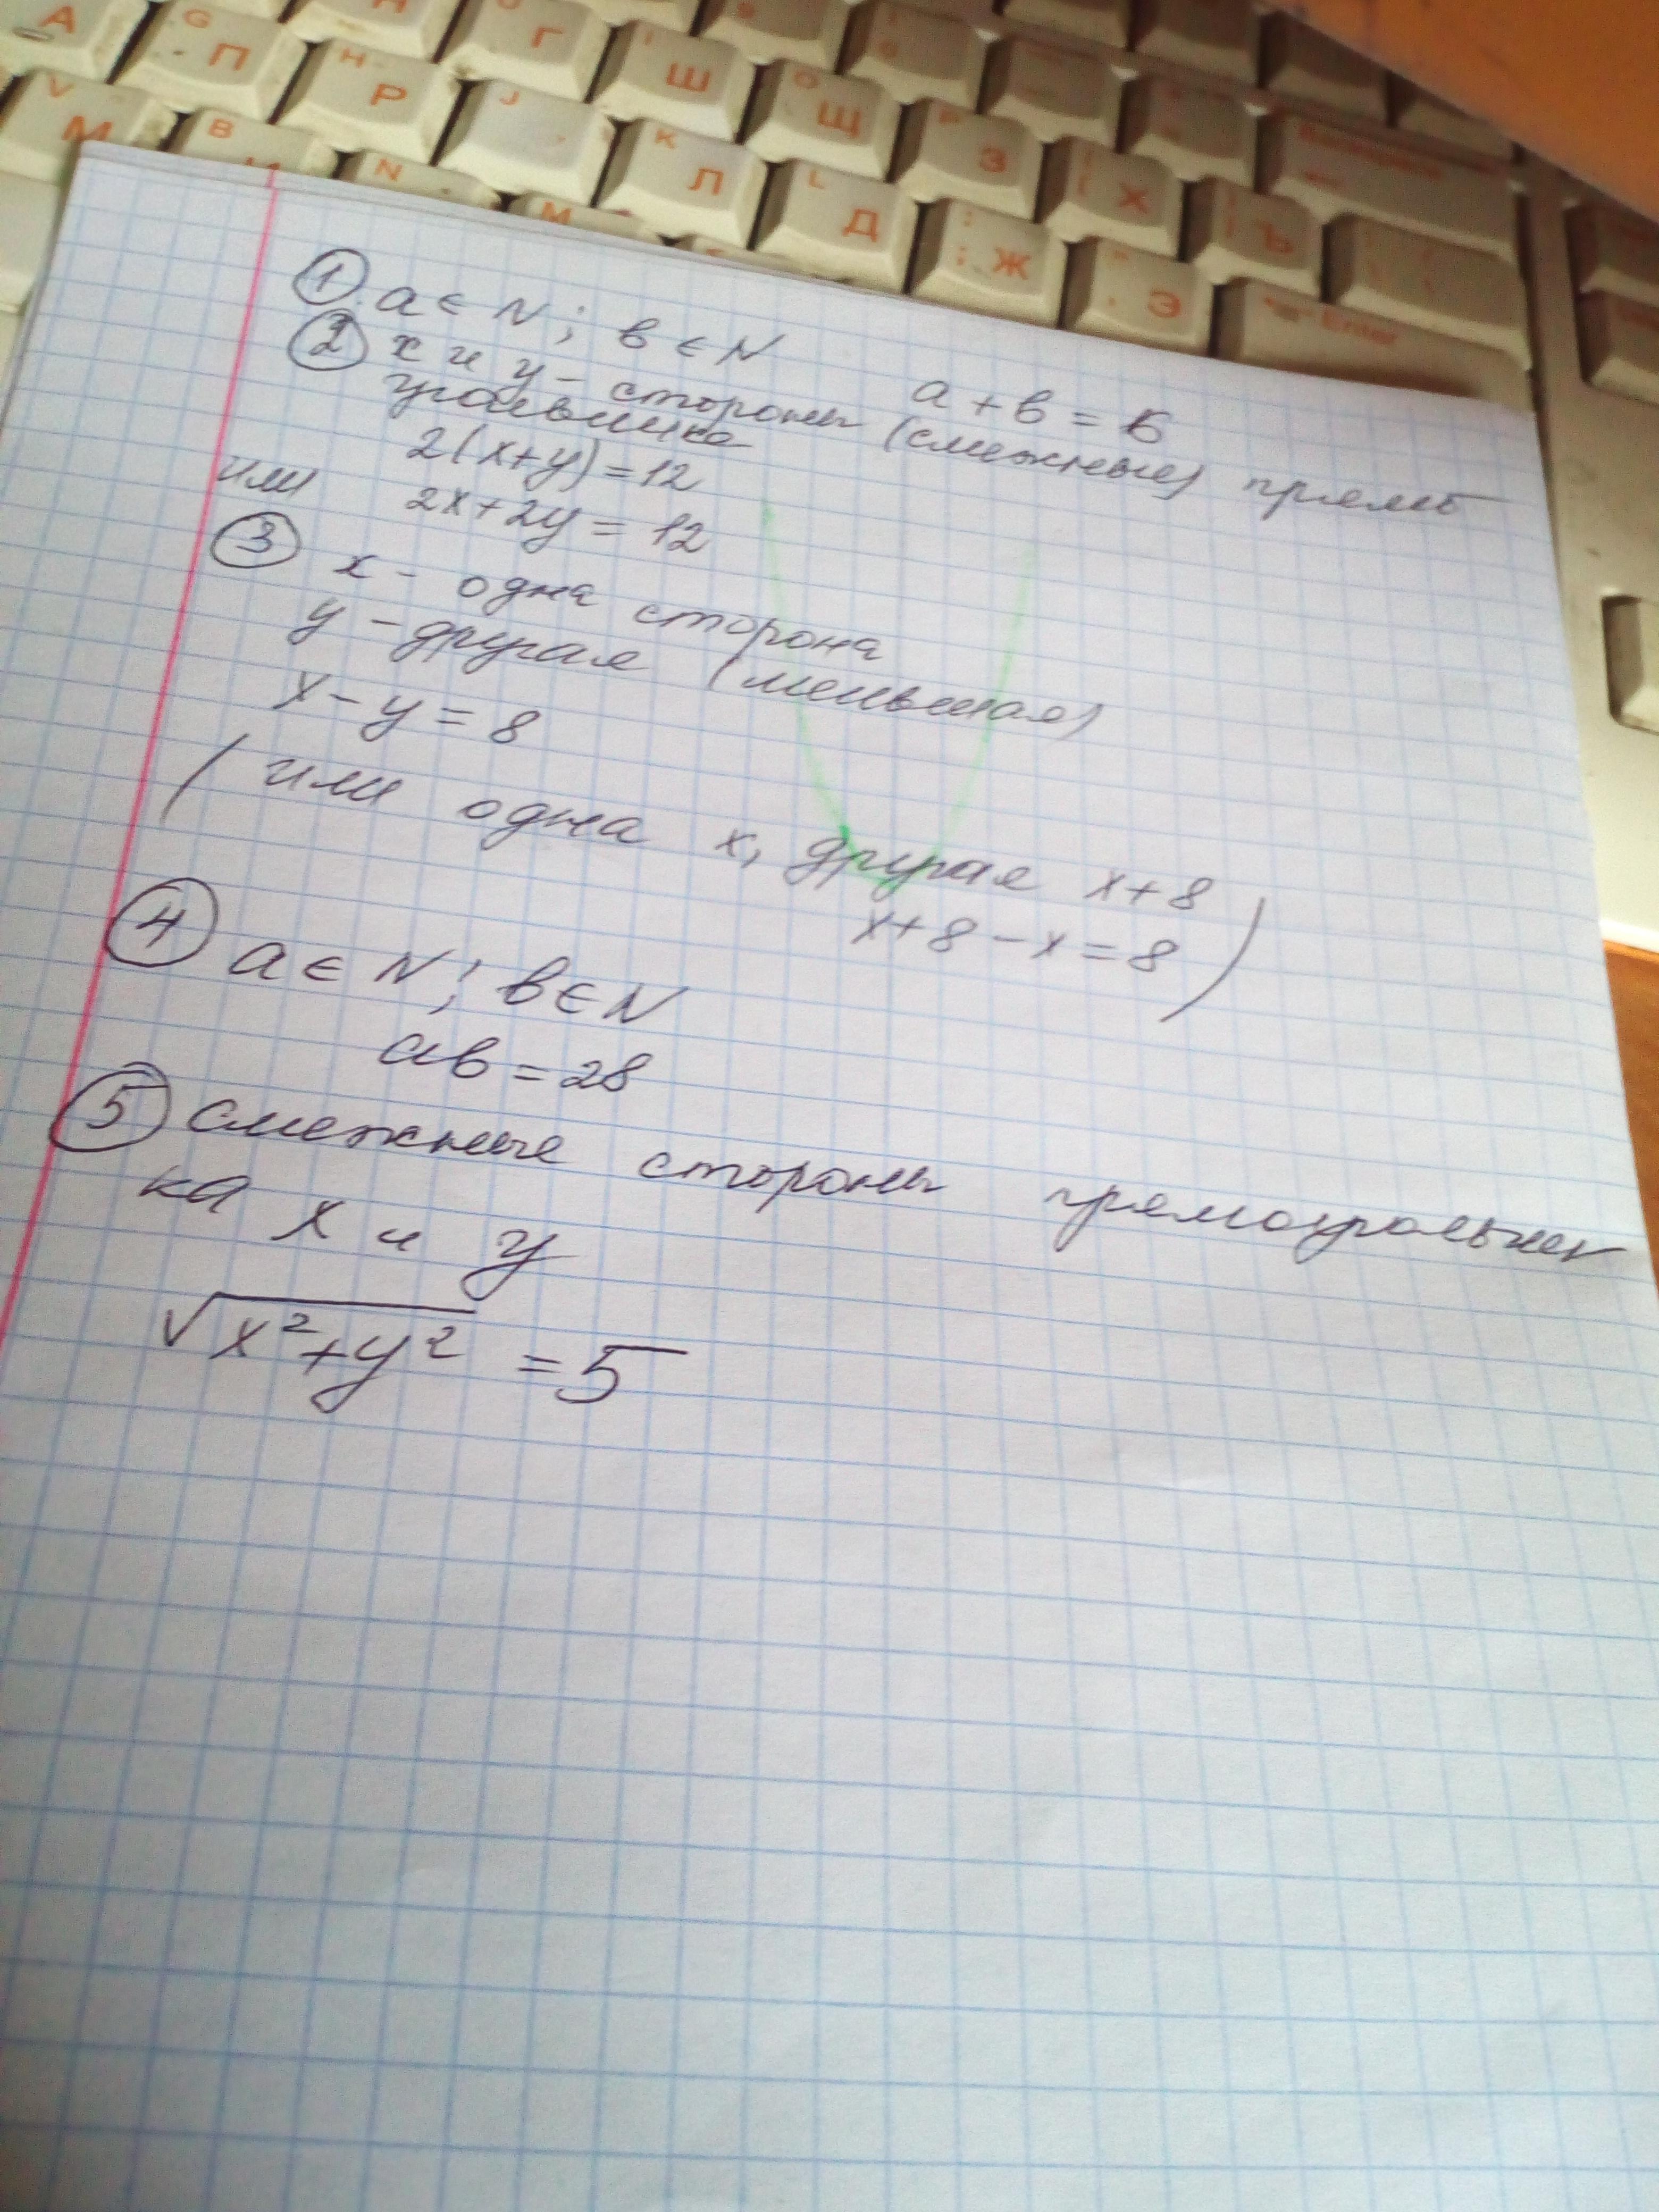 А G П Н Н Р U Г J I Ш K Л O Щ L Д P З Ж Х Э Ъ
V М B И N M Enter
① a ∈ N; в ∈ N a + в = 6
② х и у – стороны (смежные) прямо
угольника
2(x+y)=12
или 2x+2y = 12
③ х - одна сторона
у – другая (меньшая)
x - y = 8
( или одна х, другая x+8
x+8-x=8 )
④ a ∈ N; в ∈ N
ав = 28
⑤ смежные стороны прямоугольни
ка х и у
√x²+y² = 5